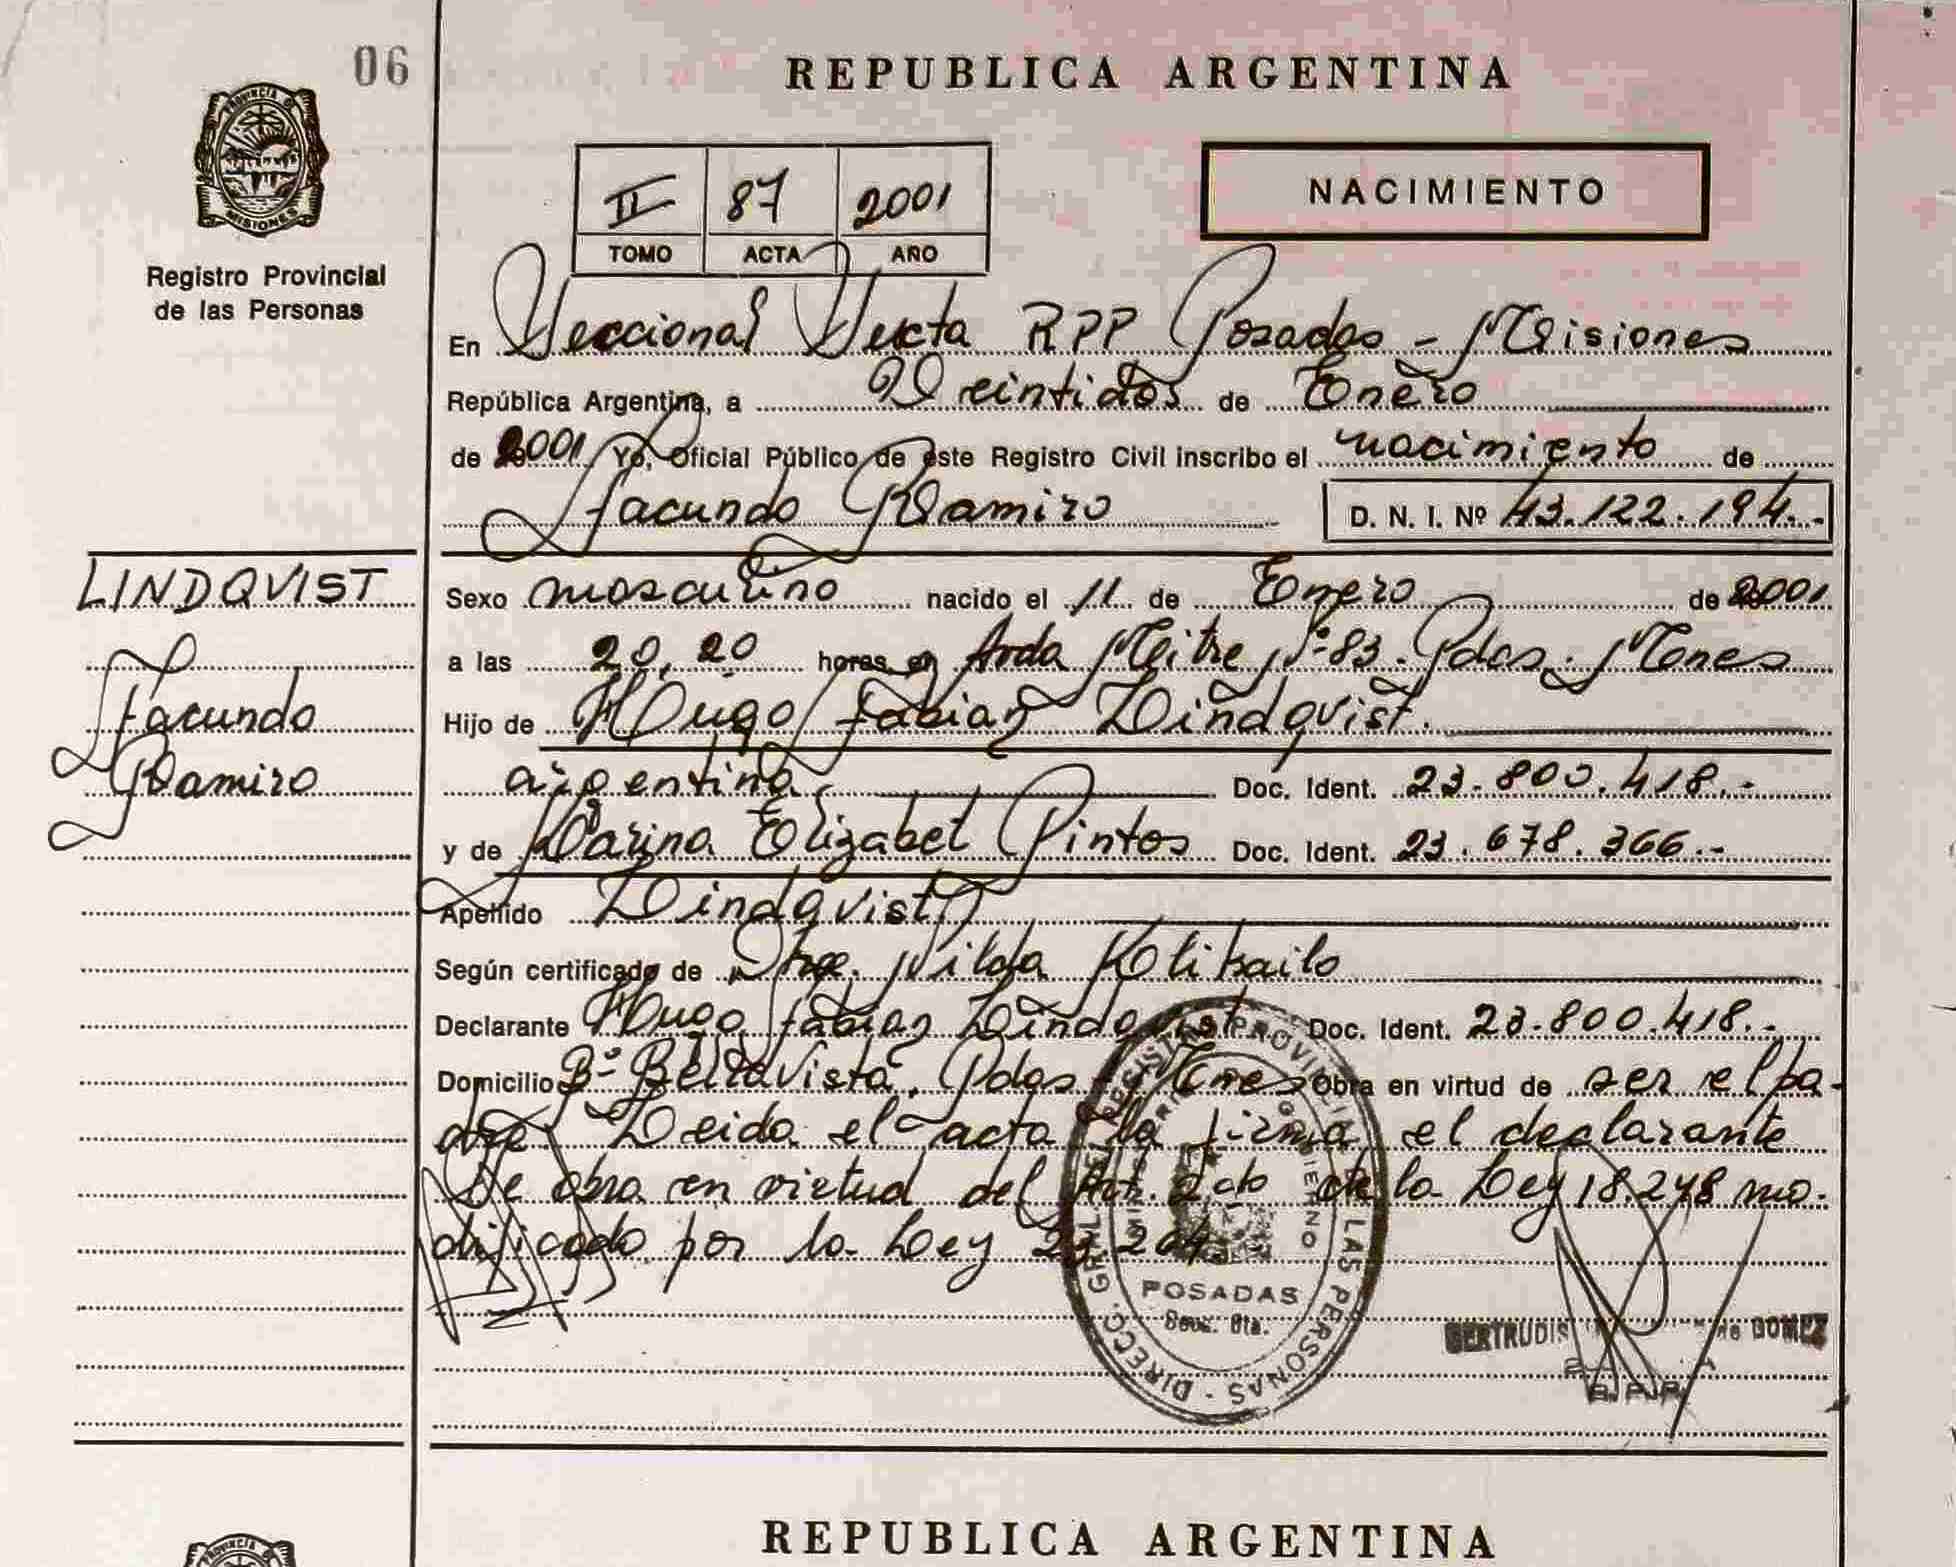 06
REPUBLICA ARGENTINA
PROVINCIA DE
MISIONES
Registro Provincial
de las Personas
NACIMIENTO
II 87 2001
TOMO ACTA AÑO
En Seccional Sexta RPP Posadas - Misiones
República Argentina, a Veintidos de Enero
de 2001 Yo, Oficial Público de este Registro Civil inscribo el nacimiento de
Facundo Ramiro D. N. I. Nº 43.122.194.-
LINDQVIST
Facundo
Ramiro
Sexo masculino nacido el 11 de Enero de 2001
a las 20,20 horas en Avda Mitre Nº 83. Pdas. Mones
Hijo de Hugo Fabian Lindqvist.
argentina Doc. Ident. 23.800.418.-
y de Karina Elizabet Pintos Doc. Ident. 23.678.366.-
Apellido Lindqvist
Según certificado de Nilda
Declarante Hugo Fabian Lindqvist Doc. Ident. 23.800.418.-
Domicilio Bº Bella Vista, Pdas - Mnes Obra en virtud de ser el pa-
dre. Leida el acta la firma el declarante
Se obra en virtud del Art. 2do de la Ley 18.248 mo-
dificado por la Ley 23.264
DIRECC. GRAL DEL REGISTRO PROVINCIAL DE LAS PERSONAS
GOBIERNO
POSADAS
Secc. 6ta.
GERTRUDIS de GOMEZ
R.P.P.
REPUBLICA ARGENTINA
PROVINCIA DE